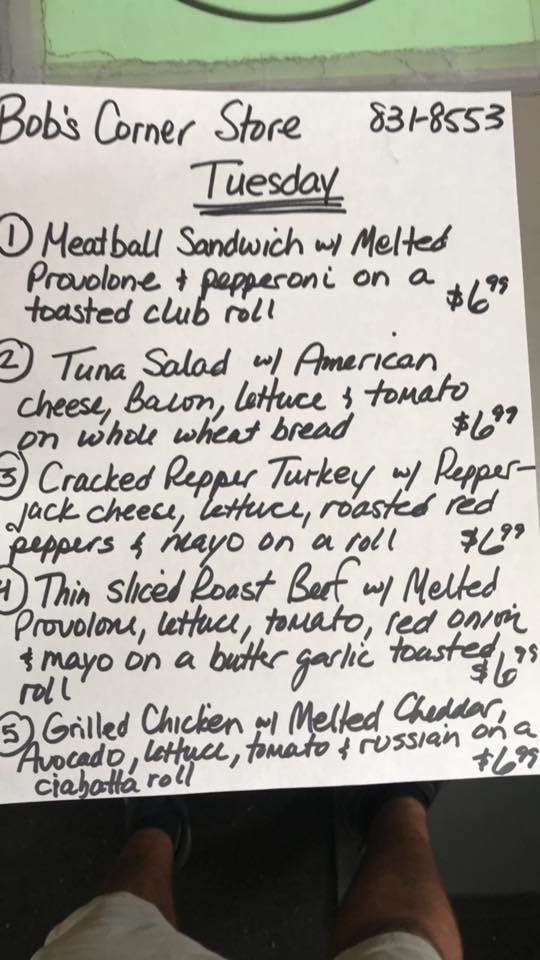 Bob's Corner Store 831-8553
Tuesday
① Meatball Sandwich w/ Melted
Provolone + pepperoni on a
toasted club roll $6.99
② Tuna Salad w/ American
cheese, Bacon, lettuce & tomato
on whole wheat bread $6.99
③ Cracked Pepper Turkey w/ Pepper-
jack cheese, lettuce, roasted red
peppers & mayo on a roll $6.99
④ Thin sliced Roast Beef w/ Melted
Provolone, lettuce, tomato, red onion
& mayo on a butter garlic toasted
roll $6.99
⑤ Grilled Chicken w/ Melted Cheddar,
Avocado, lettuce, tomato & russian on a
ciabatta roll $6.99